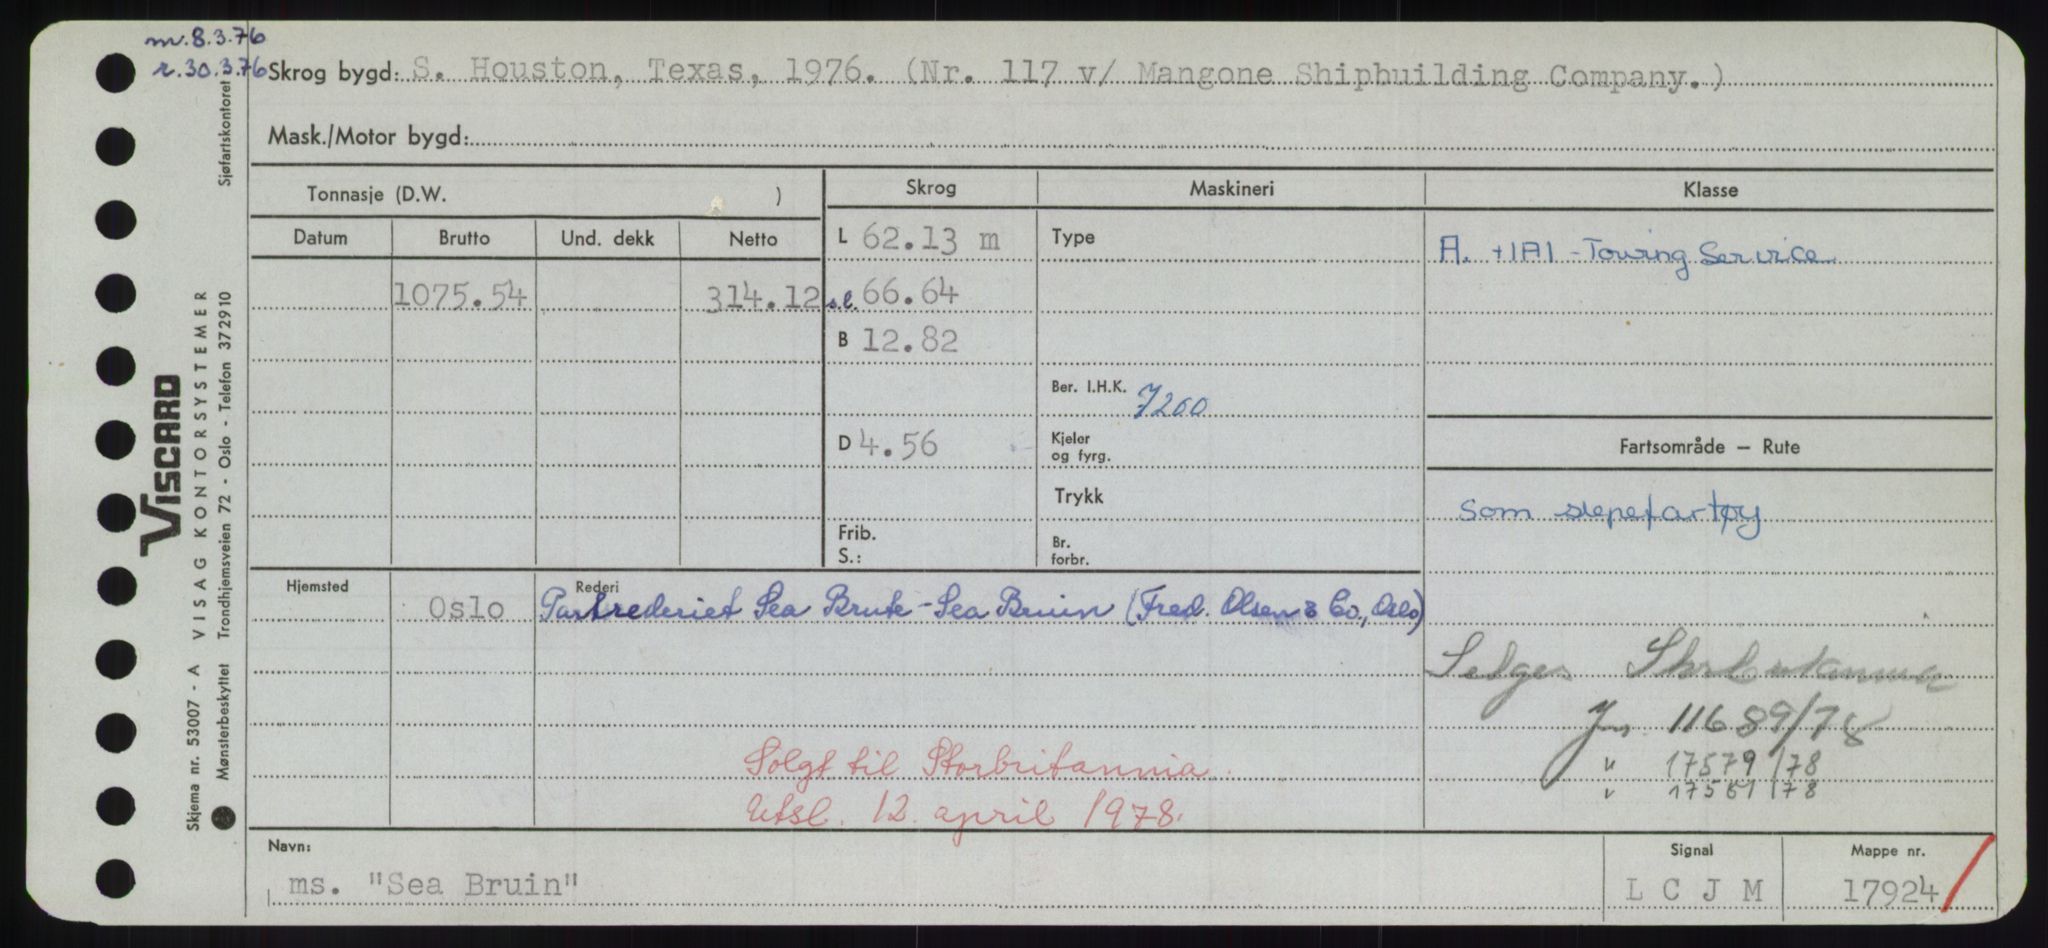 m. 8.3.76
r. 30.3.76
Skrog bygd: S. Houston, Texas, 1976. (Nr. 117 v/ Mangone Shipbuilding Company.)
Mask./Motor bygd:
Tonnasje (D.W. )
Skrog Maskineri Klasse
Datum Brutto Und. dekk Netto
L 62.13 m Type
A. +1A1 - Towing Service
1075.54 314.12 s.l. 66.64
B 12.82
Ber. I.H.K. 7200
D 4.56 Kjeler og fyrg.
Fartsområde — Rute
Trykk
Som slepefartøy
Frib. S.: Br. forbr.
Hjemsted Rederi
Oslo Partrederiet Sea Brute - Sea Bruin (Fred. Olsen & Co., Oslo)
Selges Storbritannia
Jnr. 11689/78
Solgt til Storbritannia.
" 17579/78
Utsl. 12. april 1978.
" 17581/78
Navn: Signal Mappe nr.
ms. "Sea Bruin" L C J M 17924
Skjema nr. 53007 - A VISAG KONTORSYSTEMER
VISCARD
Mønsterbeskyttet Trondhjemsveien 72 - Oslo - Telefon 372910 Sjøfartskontoret